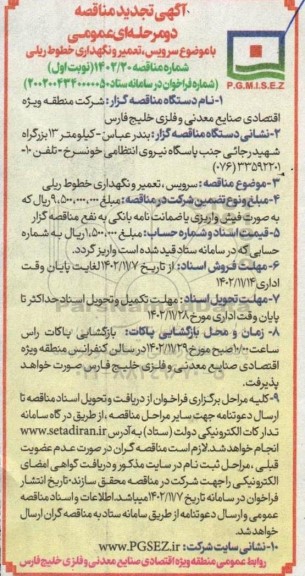 آگهی تجدید مناقصه
دو مرحله‌ای عمومی
با موضوع سرویس، تعمیر و نگهداری خطوط ریلی
شماره مناقصه ۱۴۰۲/۲۰ (نوبت اول)
(شماره فراخوان در سامانه ستاد ۲۰۰۲۰۰۴۳۴۰۰۰۰۰۵۰)
P.G.M.I.S.E.Z
۱- نام دستگاه مناقصه گزار: شرکت منطقه ویژه
اقتصادی صنایع معدنی و فلزی خلیج فارس
۲- نشانی دستگاه مناقصه گزار: بندرعباس - کیلومتر ۱۳ بزرگراه
شهید رجائی جنب پاسگاه نیروی انتظامی خونسرخ - تلفن ۱۰-
۳۳۵۹۲۲۰۱ (۰۷۶)
۳- موضوع مناقصه: سرویس، تعمیر و نگهداری خطوط ریلی
۴- مبلغ و نوع تضمین شرکت در مناقصه: مبلغ ۹,۵۰۰,۰۰۰,۰۰۰ ریال که
به صورت فیش واریزی یا ضمانت نامه بانکی به نفع مناقصه گزار
۵- قیمت اسناد و شماره حساب: مبلغ ۱,۵۰۰,۰۰۰ ریال به شماره
حسابی که در سامانه ستاد قید شده است واریز گردد.
۶- مهلت فروش اسناد: از تاریخ ۱۴۰۲/۱۱/۷ لغایت پایان وقت
اداری ۱۴۰۲/۱۱/۱۴
۷- مهلت تحویل اسناد: مهلت تکمیل و تحویل اسناد حداکثر تا
پایان وقت اداری مورخ ۱۴۰۲/۱۱/۲۸
۸- زمان و محل بازگشایی پاکات: بازگشایی پاکات راس
ساعت ۱۰/۰۰ صبح مورخ ۱۴۰۲/۱۱/۲۹ در سالن کنفرانس منطقه ویژه
اقتصادی صنایع معدنی و فلزی خلیج فارس صورت خواهد
پذیرفت.
۹- کلیه مراحل برگزاری فراخوان از دریافت و تحویل اسناد مناقصه تا
ارسال دعوتنامه جهت سایر مراحل مناقصه، از طریق درگاه سامانه
تدارکات الکترونیکی دولت (ستاد) به آدرس www.setadiran.ir
انجام خواهد شد. لازم است مناقصه گران در صورت عدم عضویت
قبلی، مراحل ثبت نام در سایت مذکور و دریافت گواهی امضای
الکترونیکی را جهت شرکت در مناقصه محقق سازند. تاریخ انتشار
فراخوان در سامانه تاریخ ۱۴۰۲/۱۱/۷ میباشد. اطلاعات و اسناد مناقصه
عمومی و ارسال دعوتنامه از طریق سامانه ستاد به مناقصه گران ارسال
خواهد شد.
۱۰- نشانی سایت شرکت: www.PGSEZ.ir
روابط عمومی منطقه ویژه اقتصادی صنایع معدنی و فلزی خلیج فارس